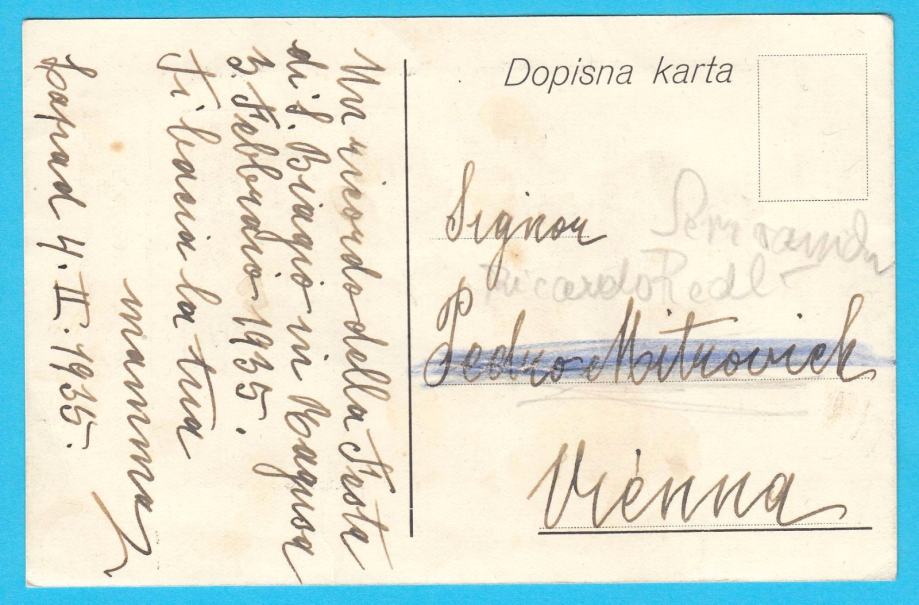 Un ricordo della Festa
di S. Biagio in Ragusa
3. Febbraio 1935.
Ti bacia la tua
mamma
Lapad 4. II. 1935.
Dopisna karta
Signor
Ricardo Redl
Pedro Mitrovich
Vienna